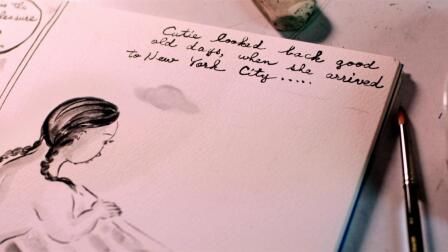 the
pleasure
Cutie looked back good
old days, when she arrived
to New York City.....